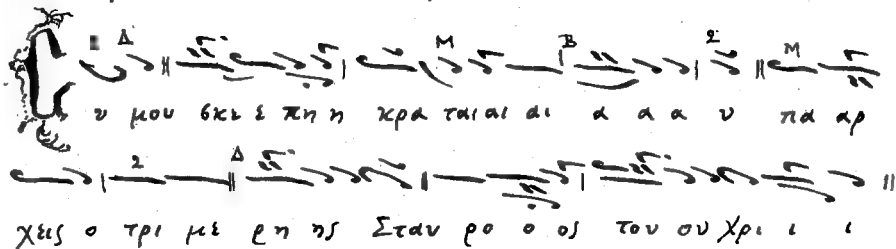 Συ μου σκε ε πη η κρα ται αι αι α α α υ πα αρ
χεις ο τρι με ρη ης Σταυ ρο ο ος του ου Χρι ι ι